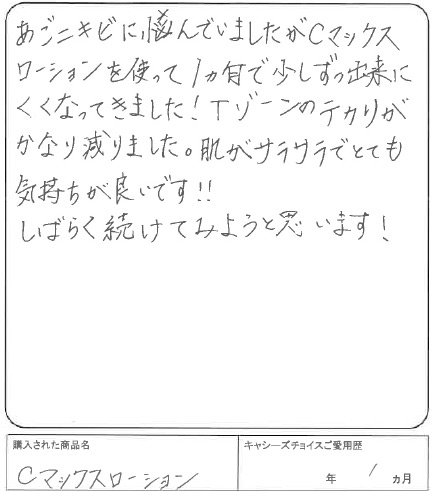 あごニキビに悩んでいましたがCマックス
ローションを使って1ヵ月で少しずつ出来に
くくなってきました！Tゾーンのテカりが
かなり減りました。肌がサラサラでとても
気持ちが良いです!!
しばらく続けてみようと思います！
購入された商品名
Cマックスローション
キャシーズチョイスご愛用歴
年 1 ヵ月